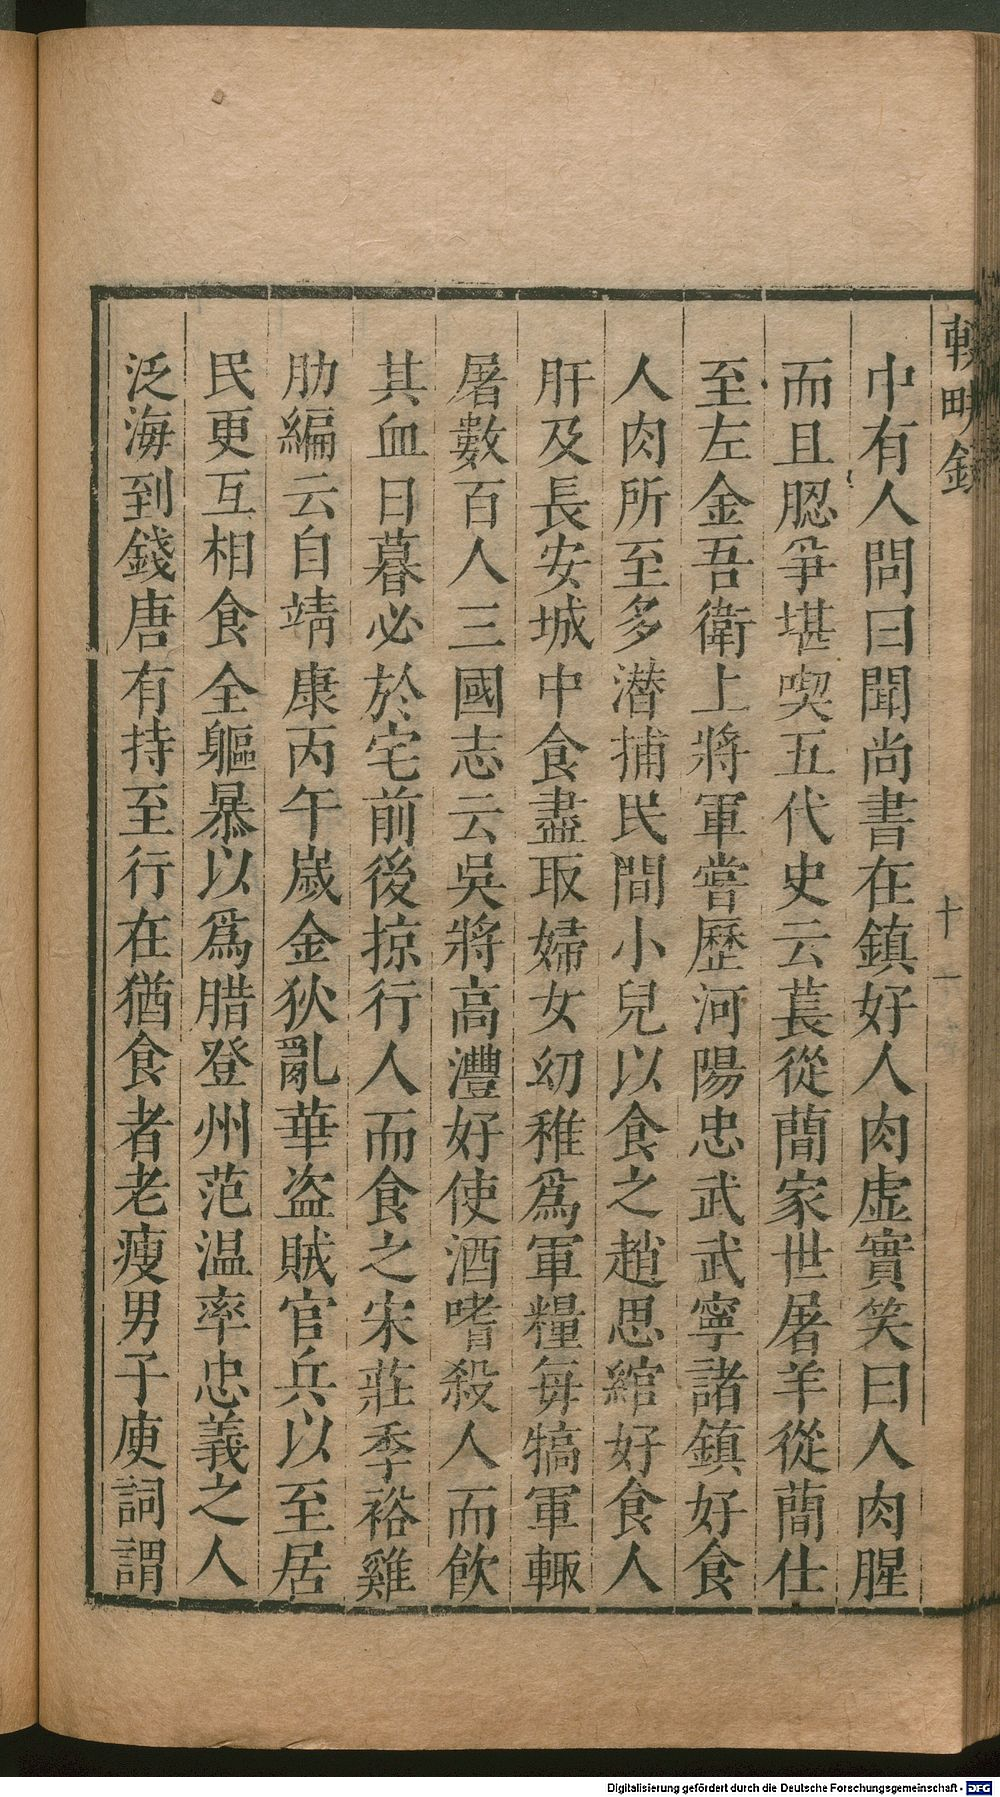 輟畊錄
十一
中有人問曰聞尚書在鎮好人肉虛實笑曰人肉腥
而且腮爭堪喫五代史云萇從蕳家世屠羊從蕳仕
至左金吾衛上將軍嘗歷河陽忠武武寧諸鎮好食
人肉所至多潛捕民間小兒以食之趙思綰好食人
肝及長安城中食盡取婦女幼稚爲軍糧每犒軍輙
屠數百人三國志云吳將高灃好使酒嗜殺人而飲
其血日暮必於宅前後掠行人而食之宋莊季裕雞
肋編云自靖康丙午歲金狄亂華盜賊官兵以至居
民更互相食全軀暴以爲腊登州范温率忠義之人
泛海到錢唐有持至行在猶食者老瘦男子庾詞謂
Digitalisierung gefördert durch die Deutsche Forschungsgemeinschaft - DFG